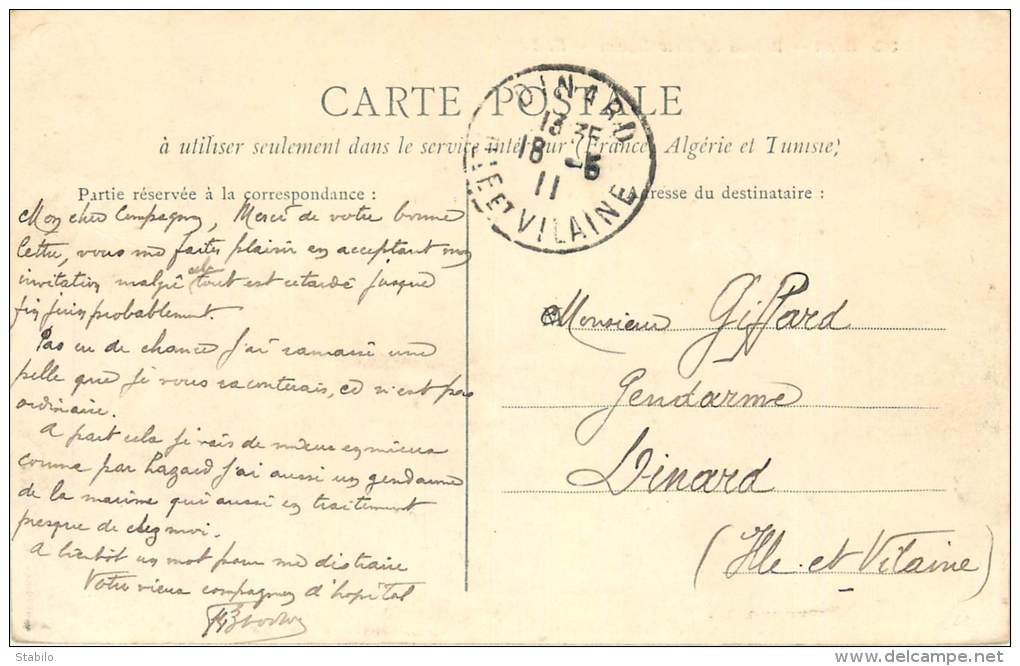 CARTE POSTALE
à utiliser seulement dans le service intérieur (France, Algérie et Tunisie)
DINARD
13 35
18 -5
11
ILLE ET VILAINE
Partie réservée à la correspondance :
Adresse du destinataire :
Mon cher Compagnon, Merci de votre bonne
lettre, vous me faites plaisir en acceptant mon
invitation malgré cela tout est retardé jusque
fin juin probablement.
Pas eu de chance j'ai ramassé une
pelle que je vous raconterais, ce n'est pas
ordinaire.
A part cela je vais de mieux en mieux
comme par hazard j'ai aussi un gendarme
de la marine qui aussi en traitement
presque de chez moi.
A bientôt un mot pour me distraire
Votre vieux compagnon d'hopital
Monsieur Giffard
Gendarme
Dinard
(Ille et Vilaine)
Stabilo
http://www.delcampe.net